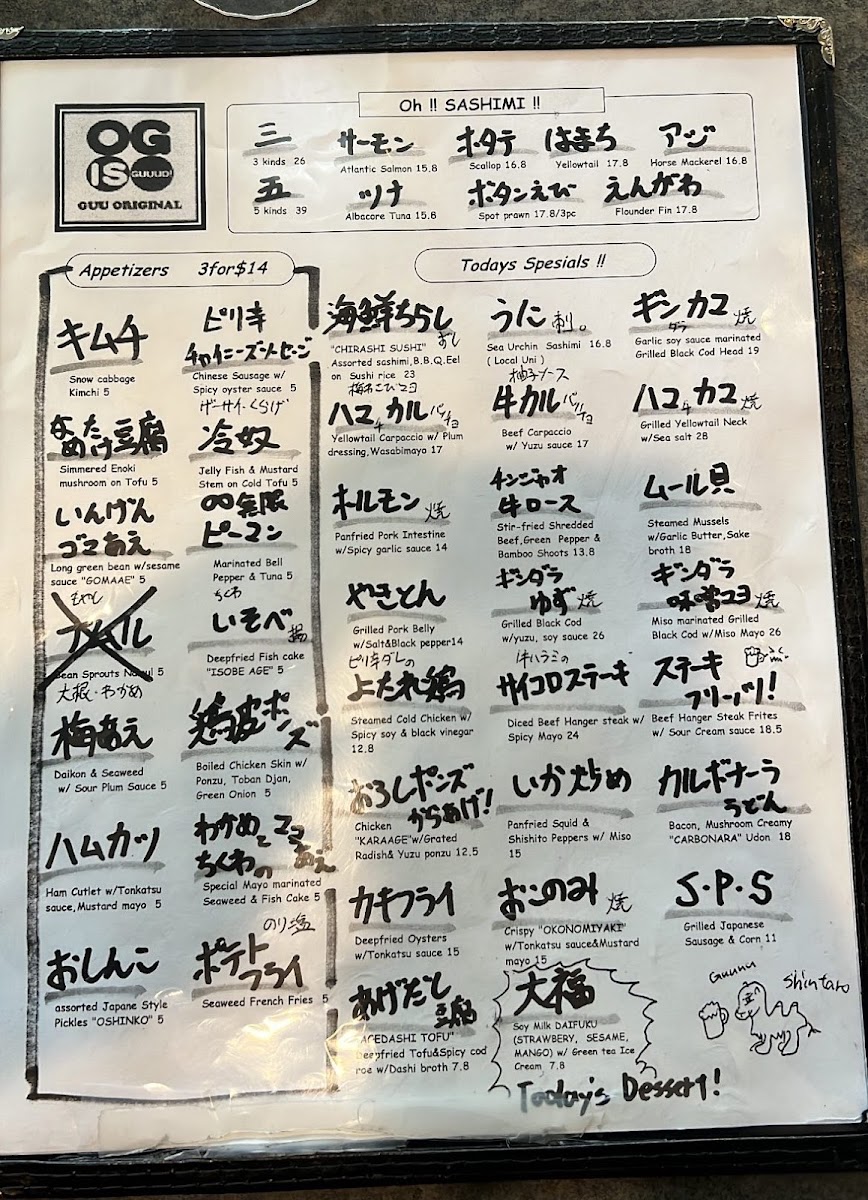 Oh !! SASHIMI !!
OG
IS GUUUD!
GUU ORIGINAL
三
3 kinds 26
サーモン
Atlantic Salmon 15.8
ホタテ
Scallop 16.8
はまち
Yellowtail 17.8
アジ
Horse Mackerel 16.8
五
5 kinds 39
ツナ
Albacore Tuna 15.8
ボタンえび
Spot prawn 17.8/3pc
えんがわ
Flounder Fin 17.8
Appetizers 3for$14
キムチ
Snow cabbage
Kimchi 5
ピリ辛
チャイニーズソーセージ
Chinese Sausage w/
Spicy oyster sauce 5
なめたけ豆腐
Simmered Enoki
mushroom on Tofu 5
ザーサイ・くらげ
冷奴
Jelly Fish & Mustard
Stem on Cold Tofu 5
いんげん
ゴマあえ
Long green bean w/sesame
sauce "GOMAAE" 5
∞無限
ピーマン
Marinated Bell
Pepper & Tuna 5
もやし
ナムル
Bean Sprouts Namul 5
ちくわ
いそべ揚
Deepfried Fish cake
"ISOBE AGE" 5
大根・わかめ
梅あえ
Daikon & Seaweed
w/ Sour Plum Sauce 5
鶏皮ポンズ
Boiled Chicken Skin w/
Ponzu, Toban Djan,
Green Onion 5
ハムカツ
Ham Cutlet w/Tonkatsu
sauce,Mustard mayo 5
わかめと
ちくわのマヨあえ
Special Mayo marinated
Seaweed & Fish Cake 5
おしんこ
assorted Japane Style
Pickles "OSHINKO" 5
のり塩
ポテト
フライ
Seaweed French Fries 5
Todays Spesials !!
海鮮ちらし
"CHIRASHI SUSHI"
Assorted sashimi,B.B.Q.Eel
on Sushi rice 23
うに刺。
Sea Urchin Sashimi 16.8
( Local Uni )
ギンダラカマ焼
Garlic soy sauce marinated
Grilled Black Cod Head 19
梅わさびマヨ
ハマチカルパッチョ
Yellowtail Carpaccio w/ Plum
dressing,Wasabimayo 17
柚子ソース
牛カルパッチョ
Beef Carpaccio
w/ Yuzu sauce 17
ハマチカマ焼
Grilled Yellowtail Neck
w/Sea salt 28
ホルモン焼
Panfried Pork Intestine
w/Spicy garlic sauce 14
チンジャオ
牛ロース
Stir-fried Shredded
Beef,Green Pepper &
Bamboo Shoots 13.8
ムール貝
Steamed Mussels
w/Garlic Butter,Sake
broth 18
やきとん
Grilled Pork Belly
w/Salt&Black pepper14
ギンダラ
ゆず焼
Grilled Black Cod
w/yuzu, soy sauce 26
ギンダラ
味噌マヨ焼
Miso marinated Grilled
Black Cod w/Miso Mayo 26
ピリ辛ダレの
よだれ鶏
Steamed Cold Chicken w/
Spicy soy & black vinegar
12.8
牛ハラミの
サイコロステーキ
Diced Beef Hanger steak w/
Spicy Mayo 24
ステーキ
フリーツ!
Beef Hanger Steak Frites
w/ Sour Cream sauce 18.5
おろしポンズ
からあげ!
Chicken
"KARAAGE"w/Grated
Radish& Yuzu ponzu 12.5
いか炒め
Panfried Squid &
Shishito Peppers w/ Miso
15
カルボナーラ
うどん
Bacon, Mushroom Creamy
"CARBONARA" Udon 18
カキフライ
Deepfried Oysters
w/Tonkatsu sauce 15
おこのみ焼
Crispy "OKONOMIYAKI"
w/Tonkatsu sauce&Mustard
mayo 15
S・P・S
Grilled Japanese
Sausage & Corn 11
あげだし
豆腐
"AGEDASHI TOFU"
Deepfried Tofu&Spicy cod
roe w/Dashi broth 7.8
大福
Soy Milk DAIFUKU
(STRAWBERY, SESAME,
MANGO) w/ Green tea Ice
Cream 7.8
Today's Dessert!
Guuuu
Shintaro